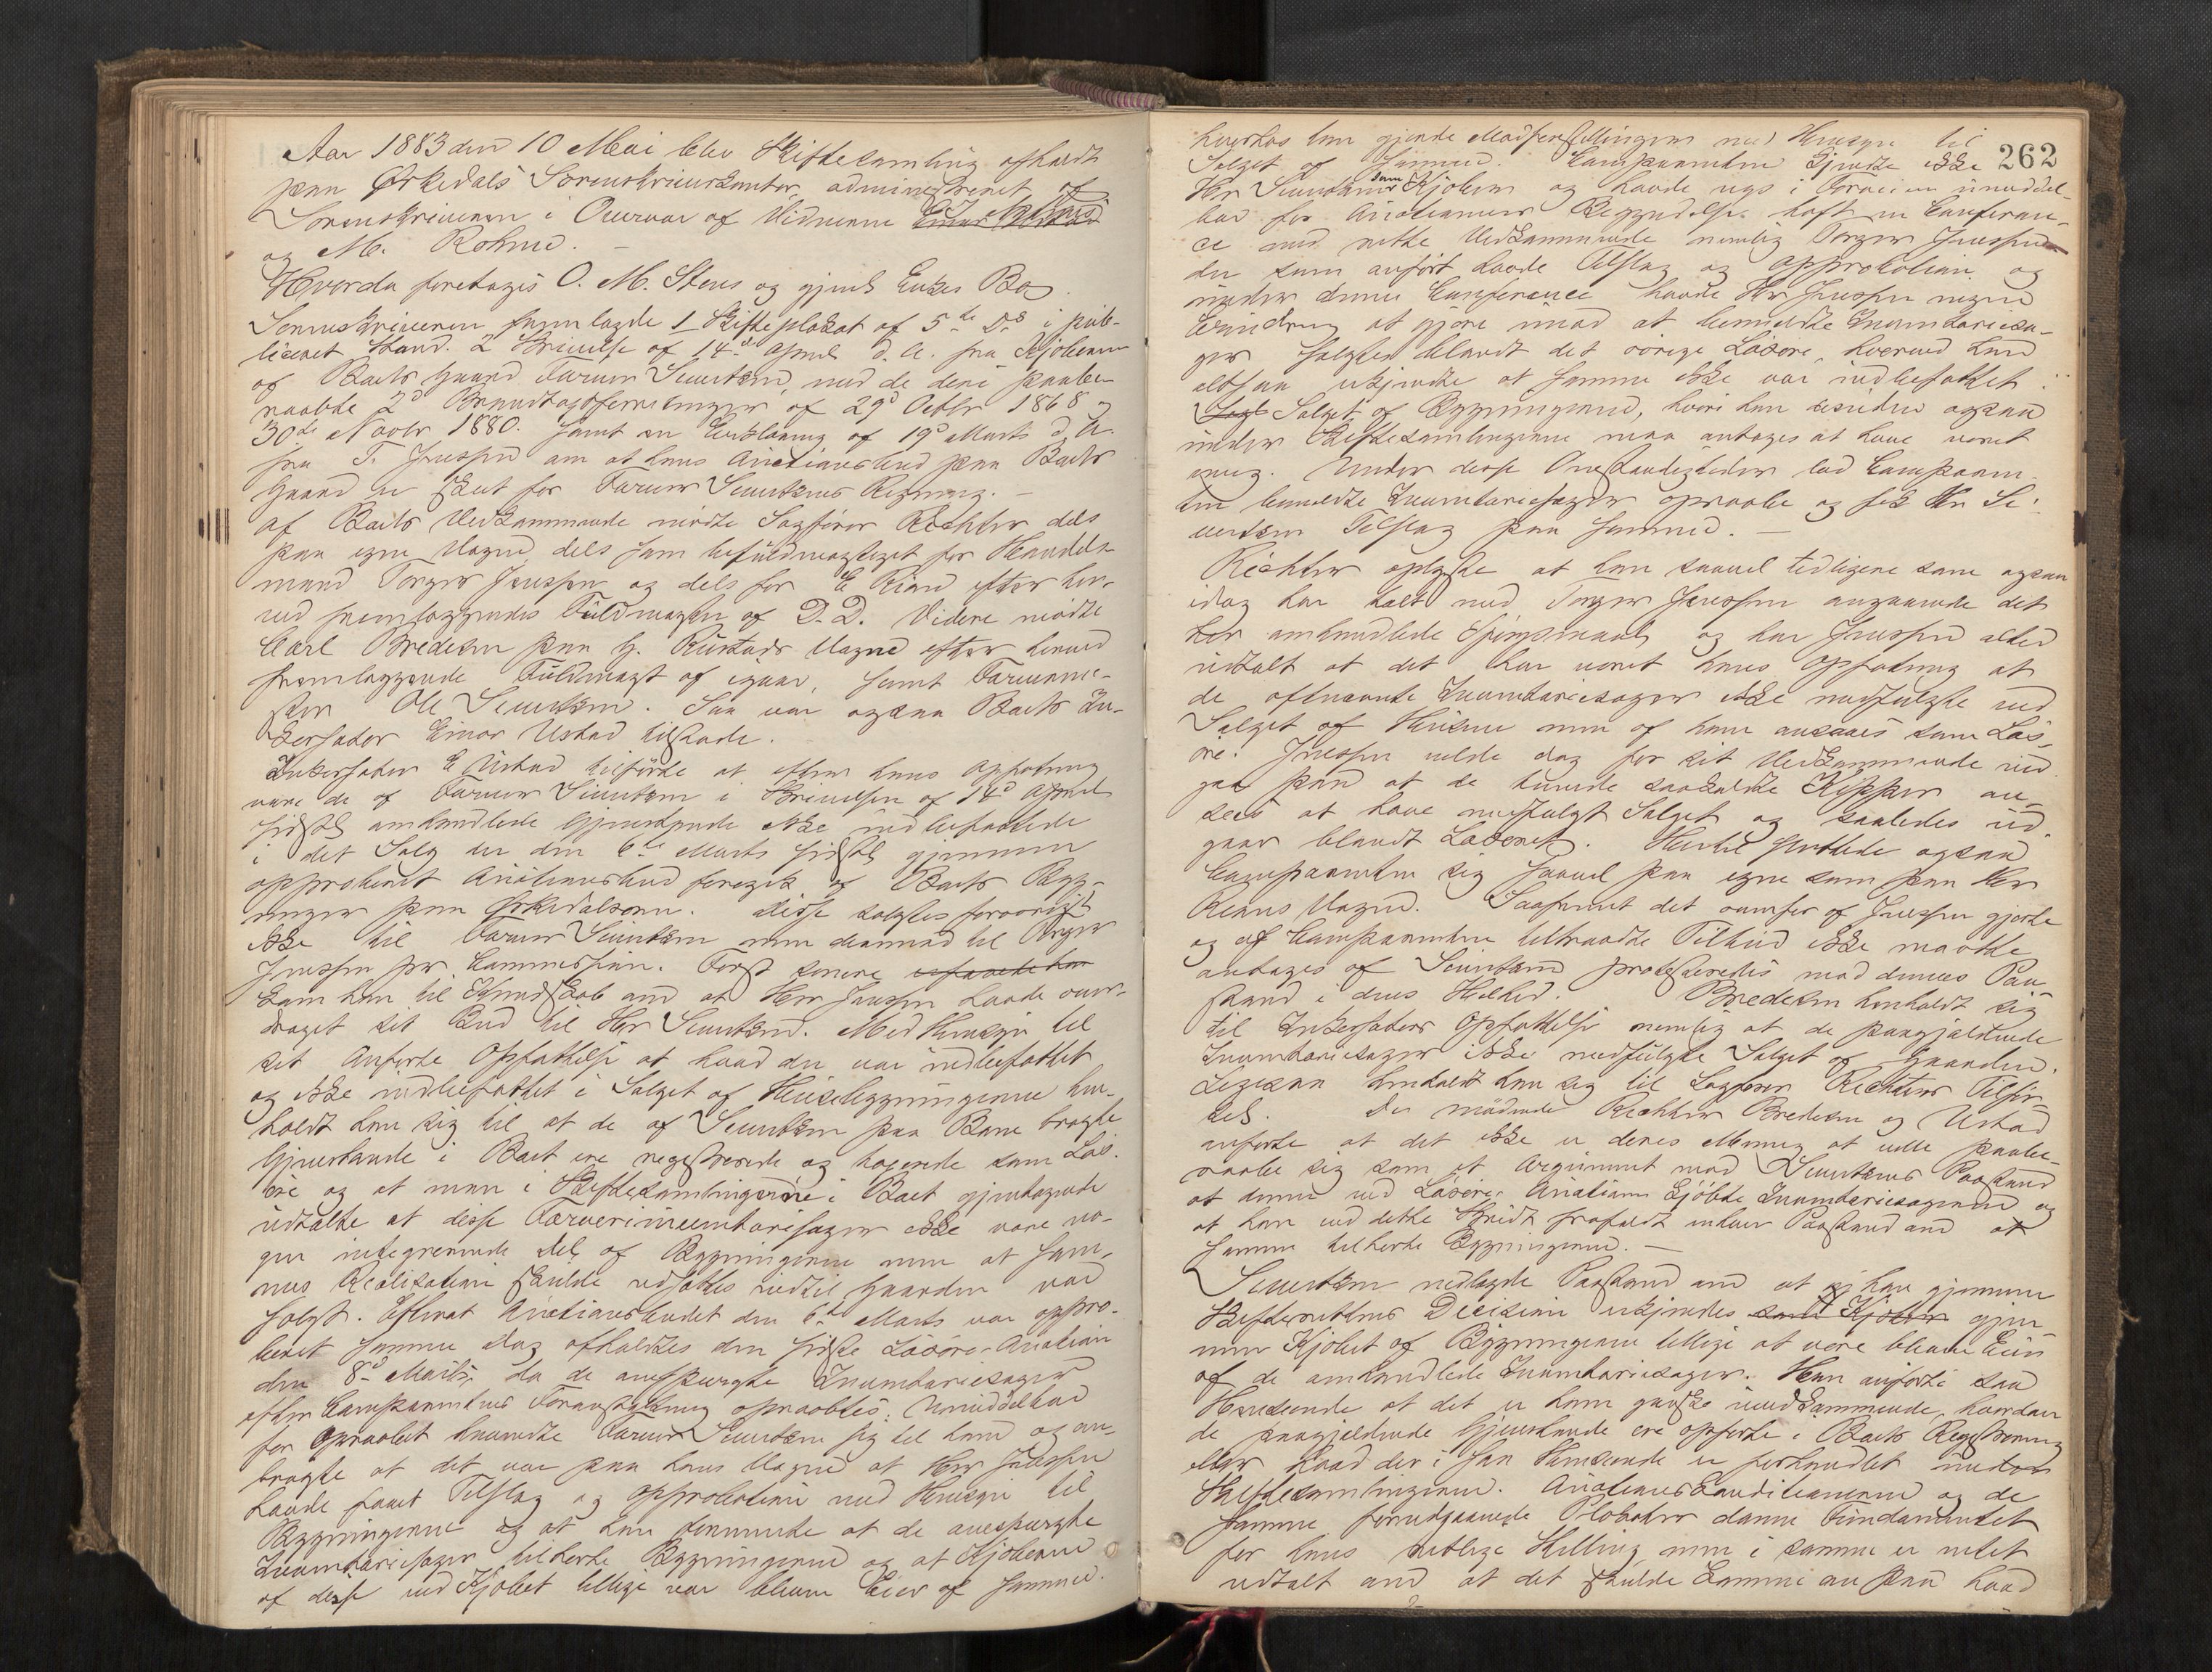 Aar 1883 den 10 Mai blev Skiftesamling afholdt
paa Ørkedals Sorenskriverkontor, administreret af
Sorenskriveren i Overvær af Vidnerne
og M. Rohme. —
Hvorda foretoges O. M. Stens og gjenl Enkes Bo
Sorenskriveren fremlagde 1 Skifteplakat af 5de Ds i pub-
liceret Stand. 2 Skrivelse af 14de April d. A. fra Kjøberen
af Boets Gaard Farver Sivertsen, med de deri paabe-
raabte 2d Brandtaxtforretninger af 29d Octbr 1868 og
30de Novbr 1880. samt en Erklæring af 19d Marts d. A.
fra T. Jenssen om at hans Auctionsbud paa Boets
Gaard er skeet for Farver Sivertsens Regning. —
Af Boets Vedkommende mødte Sagfører Richter dels
paa egne Vegne, dels som befuldmægtiget for Handels-
mand Torger Jenssen og dels for E Rian efter her-
ved fremlæggendes Fuldmagter af D. D. Videre mødte
Carl Bredesen paa H. Rustads Vegne efter herved
fremlæggende Fuldmagt af igaar, samt Farverme-
ster Ole Sivertsen. Saa var ogsaa Boets In-
kassator Einar Ustad tilstede.
Inkassator E Ustad tilførte at efter hans Opfatning
vare de af Farver Sivertsen i Skrivelsen af 14d April
sidstl omhandlede Gjenstande ikke indbefattede
i det Salg der den 6te Marts sidstl gjennem
approberet Auctionsbud foregik af Boets Byg-
ninger paa Ørkedalsøren. Disse solgtes forøvrigt
ikke til Farver Sivertsen men derimod til Torger
Jenssen pr Commission. Først senere
kom han til Kundskab om at Herr Jenssen havde over-
draget sit Bud til Hr Sivertsen. Med Hensyn til
sit anførte Opfattelse at hvad der var indbefattet
og ikke indbefattet i Salget af Husebygningerne hen-
holdt han sig til at de af Sivertsen paa Bane bragte
Gjenstande i Boet ere registrerede og taxerede som Løs-
øre og at man i Skiftesamlingerne i Boet gjentagende
udtalte at disse Farveriinventariesager ikke vare no-
gen integrerende Del af Bygningerne men at sam-
mes Realisation skulde udsættes indtil Gaarden var
solgt. Efterat Auctionsbudet den 6te Marts var appro-
beret samme Dag afholdtes den sidste Løsøre-Auction
den 8de Marts, da de omspurgte Inventariesager
efter Comparentens Foranstaltning opraabtes. Umiddelbar
for Opraabet henvendte Farver Sivertsen sig til ham og an-
bragte at det var paa hans Vegne at Herr Jenssen
havde faaet Tilslag og Approbation med Hensyn til
Bygningerne og at han formente at de omspurgte
Inventariesager tilhørte Bygningerne og at Kjøberen
af disse ved Kjøbet tillige var bleven Eier af samme.
262
hvorhos han gjorde Modforestillinger med Hensyn til
Salget af samme. Comparenten kjendte ikke
Hr Sivertsen som Kjøber og havde ogs i Forveien umiddel-
bar for Auctionens Begyndelse haft en Conferen-
ce med rette Vedkommende nemlig Torger Jenssen
der som anført havde Tilslag og Approbation og
under denne Conference havde Hr Jenssen ingen
Indvending at gjøre imod at bemeldte Inventariesa-
ger solgtes blandt det øvrige Løsøre, hvorved han
altsaa erkjendte at samme ikke var indbefattet i
Salget af Bygningerne, hvori han desuden ogsaa
under Skiftesamlingerne maa antages at have været
enig. Under disse Omstændigheder lod Comparen-
ten bemeldte Inventariesager opraabe og fik Hr Si-
vertsen Tilslag paa samme. —
Richter oplyste at han saavel tidligere som ogsaa
idag har talt med Torger Jenssen angaaende det
her omhandlede Spørgsmaal og har Jenssen altid
udtalt at det har været hans Opfatning at
de oftnævnte Inventariesager ikke medfulgte ved
Salget af Husene men af ham ansaaes som Løs-
øre. Jenssen vilde dog for sit Vedkommende ind-
gaa paa at de tvende saakaldte Kipper an-
sees at have medfulgt Salget og saaledes ud-
gaar blandt Løsøret. Hertil sluttede ogsaa
Comparenten sig saavel paa egne som paa Herr
Rians Vegne. Saafremt det ovenfor af Jenssen gjorte
og af Comparenten tiltraadte Tilbud ikke maatte
antages af Sivertsen protesteredes mod dennes Paa-
stand i dens Helhed. Bredesen henholdt sig
til Inkassators Opfattelse nemlig at de paagjældende
Inventariesager ikke medfulgte Salget af Gaarden.
Ligesaa henholdt han sig til Sagfører Richters Tilfør-
sel. De mødende Richter Bredesen og Ustad
anførte at det ikke er deres Mening at ville paabe-
raabe sig som et Argument mod Sivertsens Paastand
at denne ved Løsøre-Auctionen kjøbte Inventariesagerne og
at han ved dette Skridt frafaldt enhver Paastand om at
samme tilhørte Bygningerne. —
Sivertsen nedlagde Paastand om at han gjennem
Skifterettens Decision erkjendes gjen-
nem Kjøbet af Bygningerne tillige at være bleven Eier
af de omhandlede Inventariesager. Han anførte saa
Henseende at det er ham ganske uvedkommende, hvordan
de paagjeldende Gjenstande ere opførte i Boets Registrering
eller hvad der i saa Henseende er forhandlet under
Skiftesamlingerne. Auctionsconditionerne og de
samme forudgaaende Plakater danne Fundamentet
for hans retslige Stilling, men i samme er intet
udtalt om at det skulde komme an paa hvad